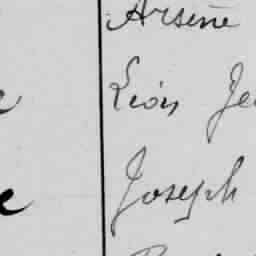 Arsène
Léon Je
Joseph